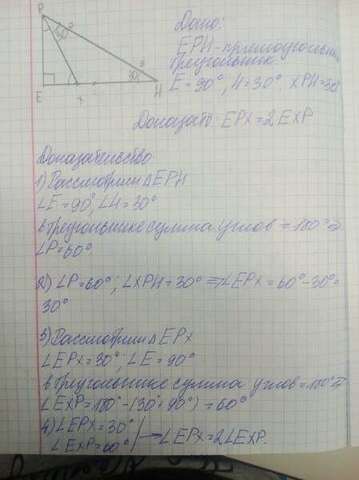 P
30°
30°
E
x
H
Дано:
EPH - прямоугольный
треугольник.
E = 90°, H = 30° XPH = 30°
Доказать: EPX = 2EXP
Доказательство
1) Рассмотрим △EPH
∠E = 90°, ∠H = 30°
в треугольнике сумма углов = 180° ⇒
∠P = 60°
2) ∠P = 60°; ∠XPH = 30° ⇒ ∠EPX = 60° - 30° =
30°
3) Рассмотрим △EPX
∠EPX = 30°, ∠E = 90°
в треугольнике сумма углов = 180° ⇒
∠EXP = 180° - (30° + 90°) = 60°
4) ∠EPX = 30°
∠EXP = 60° | → ∠EPX = 2∠EXP.